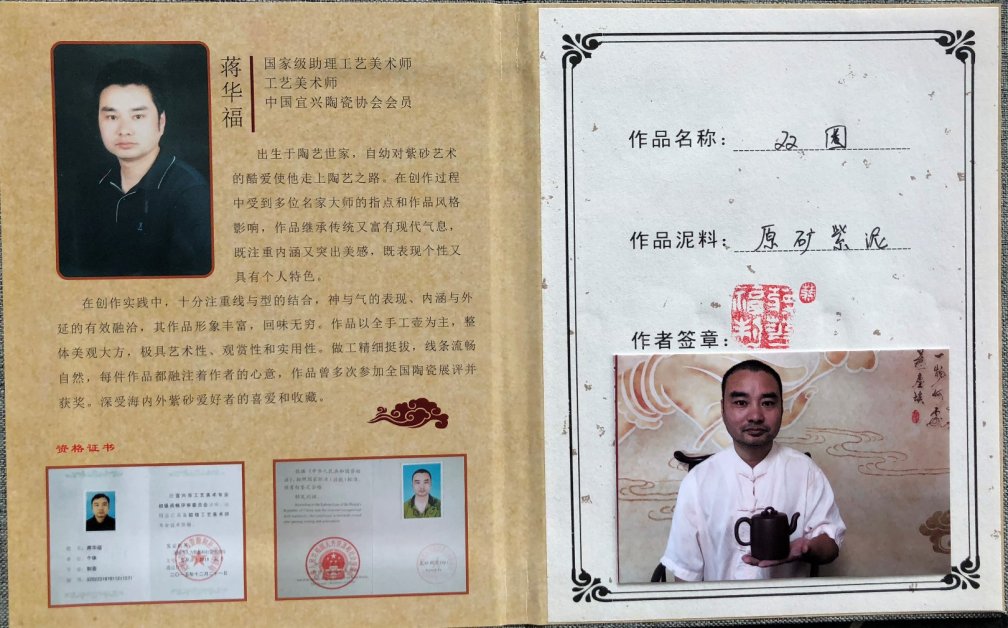 蒋华福
国家级助理工艺美术师
工艺美术师
中国宜兴陶瓷协会会员
出生于陶艺世家，自幼对紫砂艺术
的酷爱使他走上陶艺之路。在创作过程
中受到多位名家大师的指点和作品风格
影响，作品继承传统又富有现代气息，
既注重内涵又突出美感，既表现个性又
具有个人特色。
在创作实践中，十分注重线与型的结合，神与气的表现、内涵与外
延的有效融洽，其作品形象丰富，回味无穷。作品以全手工壶为主，整
体美观大方，极具艺术性、观赏性和实用性。做工精细挺拔，线条流畅
自然，每件作品都融注着作者的心意，作品曾多次参加全国陶瓷展评并
获奖。深受海内外紫砂爱好者的喜爱和收藏。
资格证书
作品名称：双圈
作品泥料：原矿紫泥
作者签章：